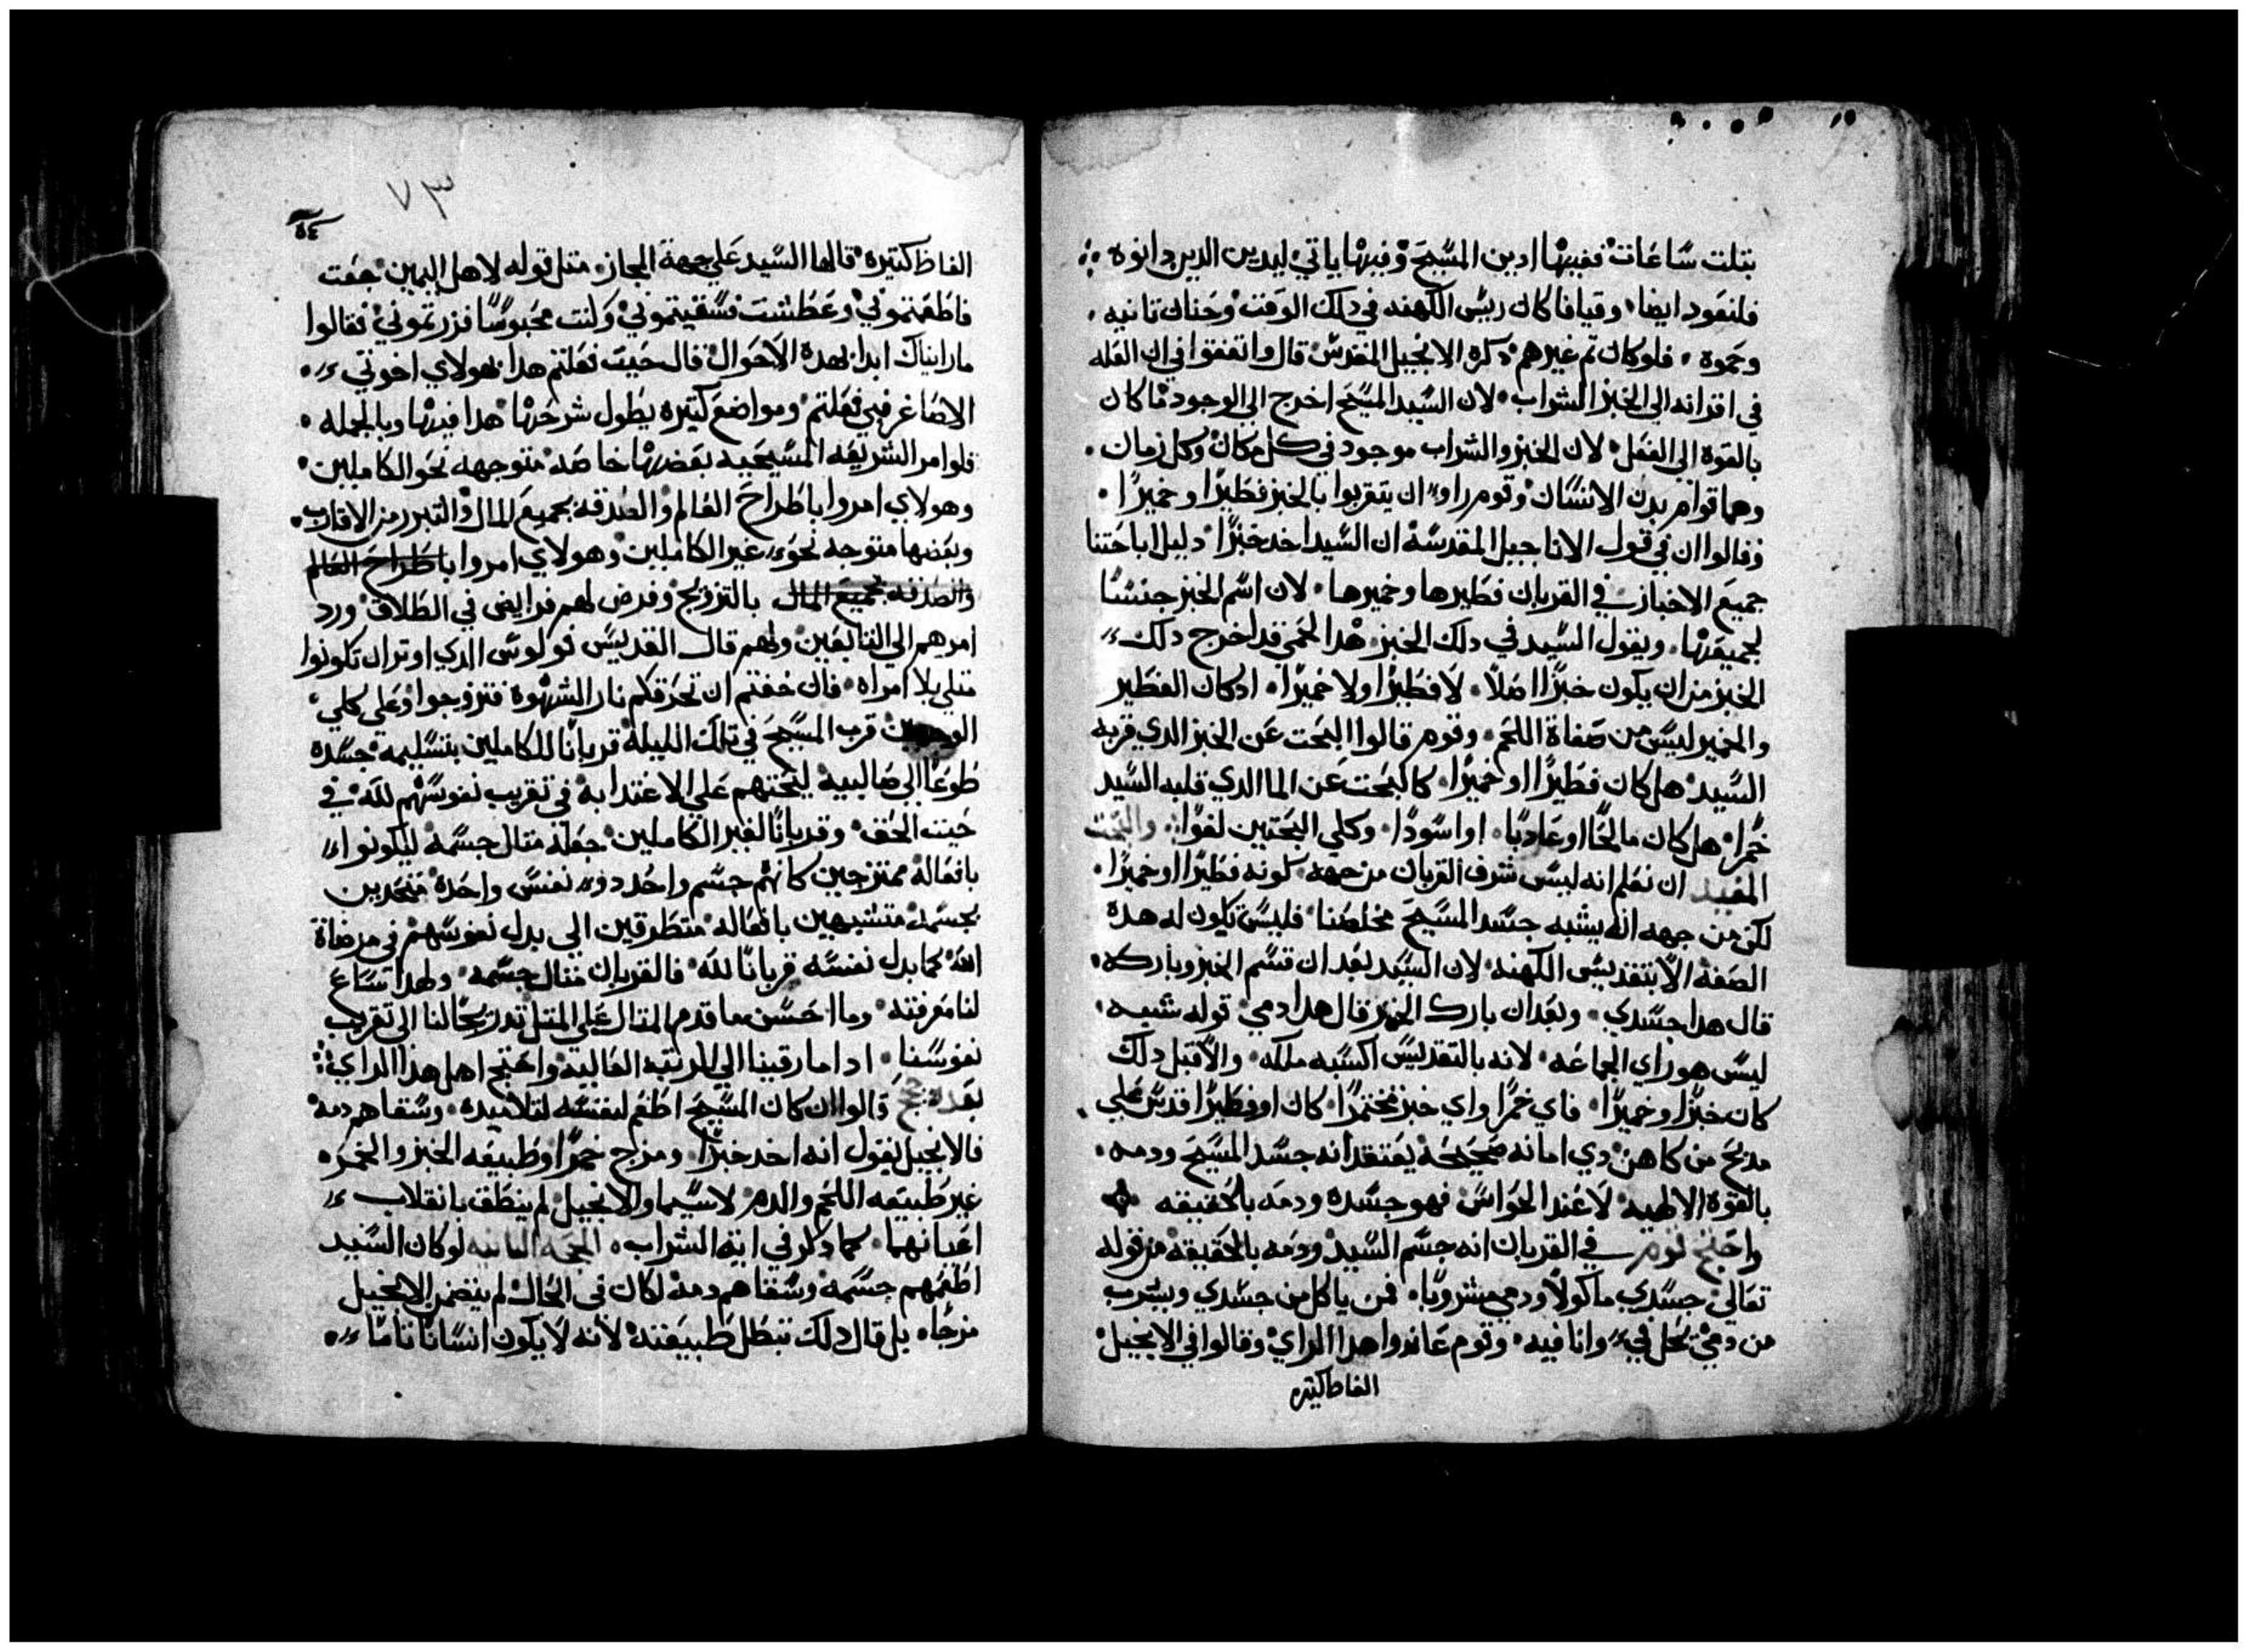 بتلت ساعات ففيها ادين المسيح وفيها ياتي ليدين الدين دانوه
فلنعود ايضا وقيافا كان رييس الكهنه في دلك الوقت وحنان تانيه
وحموه فلو كان تم غيرهم دكره الانجيل المقدس قال واتفقوا في ان العله
في اقرانه الي الخبز الشراب لان السيد المسيح اخرج الي الوجود ما كان
بالقوة الي الفعل لان الخبز والشراب موجود في كل مكان وكل زمان
وهما قوام بدن الانسان وقوم راوا ان يتقربوا بالخبز فطيرا وخميرا
وقالوا ان في قول الاناجيل المقدسة ان السيد اخد خبزا دليل اباحتنا
جميع الاخباز في القربان فطيرها وخميرها لان اسم الخبز جنسا
لجميعها ويقول السيد في دلك الخبز هدا لحمي قد اخرج دلك
الخبز من ان يكون خبزا اصلا لا فطيرا ولا خميرا ادكان الفطير
والخمير ليس من صفاة اللحم وقوم قالوا البحت عن الخبز الدي قربه
السيد هل كان فطيرا او خميرا كالبحت عن الما الدي قلبه السيد
خمرا هل كان مالحا او عادبا او اسودا وكلي البحتين لغوا والبحت
المفيد ان نعلم انه ليس شرف القربان من جهة كونه فطيرا او خميرا
لكن من جهه انه يشبه جسد المسيح مخلصنا فليس تكون له هده
الصفة الا بتقديس الكهنه لان السيد بعد ان قسم الخبز وباركه
قال هدا جسدي وبعد ان بارك الخمر قال هدا دمي قوله شبه
ليس هو راي الجماعه لانه بالتقديس اكسبه ملكه والا قبل دلك
كان خبزا وخميرا فاي خمرا واي خبز مختمرا كان او فطيرا قدس علي
مدبح من كاهن دي امانه صحيحة يعتقد انه جسد المسيح ودمه
بالقوة الالهيه لا عند الحواس فهو جسده ودمه بالحقيقه
واحتج قوم في القربان انه جسم السيد ودمه بالحقيقة من قوله
تعالي جسدي ماكولا ودمي مشروبا فمن ياكل من جسدي ويشرب
من دمي يحل في وانا فيه وقوم عاندوا هدا الراي وقالوا في الانجيل
الفاظ كتيره
٧٣
٥٤
الفاظ كتيره قالها السيد علي جهة المجاز متل قوله لاهل اليمين جعت
فاطعمتموني وعطشت فسقيتموني وكنت محبوسا فزرتموني فقالوا
ما رايناك ابدا بهده الاحوال قال حيت فعلتم هدا بهولاي اخوتي
الاصاغر فبي فعلتم ومواضع كتيره يطول شرحها هدا فيها وبالجمله
فلوامر الشريعه المسيحيه بعضها خاصه متوجهه نحو الكاملين
وهولاي امروا باطراح العالم والصدقه بجميع المال والتبرر من الاقارب
وبعضها متوجه نحو غير الكاملين وهولاي امروا باطراح العالم
والصدقه بجميع المال بالتزويج وفرض لهم فرايض في الطلاق ورد
امرهم الي التابعين ولهم قال القديس بولوس الدي اوتر ان تكونوا
متلي بلا امراه فان خفتم ان تحرقكم نار الشهوة فتزوجوا وعلي كلي
قرب المسيح في تلك الليلة قربانا للكاملين بتسليمه جسده
طوعا الي صالبيه ليحتهم علي الاقتدا به في تقريب نفوسهم لله في
حيت الحق وقربانا لغير الكاملين جعله متال جسمه ليكونوا
بافعاله ممتزجين كانهم جسم واحد دو نفس واحدة متحدين
بجسمه متشبهين بافعاله متطرقين الي بدل نفوسهم في مرضاة
الله كما بدل نفسه قربانا لله فالقربان متال جسمه ولهدا تساع
لنا معرفته وما احسن ما قدم المتال علي المتل تدريجا لنا الي تقريب
نفوسنا ادا ما رقينا الي المرتبة العالية واحتج اهل هدا الراي
بعدة حجج قالوا ان كان المسيح اطعم لنفسه لتلاميده وسقاهم دمه
فالانجيل يقول انه اخد خبزا ومزج خمرا وطبيعه الخبز والخمر
غير طبيعه اللحم والدم لاسيما والانجيل لم ينطق بانقلاب
اعيانهما كما دكر في اية الشراب الحجه التانيه لو كان السيد
اطعمهم جسمه وسقاهم دمه لكان في الحال لم يتضمن الانجيل
مزجا بل قال دلك تبطل طبيعته لانه لا يكون انسانا تاما